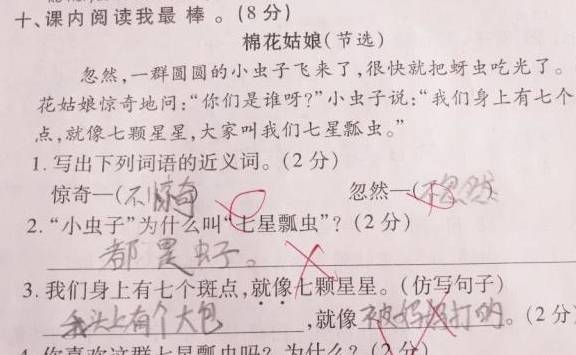 十、课内阅读我最棒。(8分)
棉花姑娘(节选)
忽然,一群圆圆的小虫子飞来了,很快就把蚜虫吃光了。
花姑娘惊奇地问:“你们是谁呀?”小虫子说:“我们身上有七个
点,就像七颗星星,大家叫我们七星瓢虫。”
1.写出下列词语的近义词。(2分)
惊奇—(不惊奇) 忽然—(不忽然)
2.“小虫子”为什么叫“七星瓢虫”?(2分)
都是虫子。
3.我们身上有七个斑点,就像七颗星星。(仿写句子)
我头上有个大包,就像被妈妈打的。(2分)
4.你喜欢这群七星瓢虫吗?为什么?(2分)